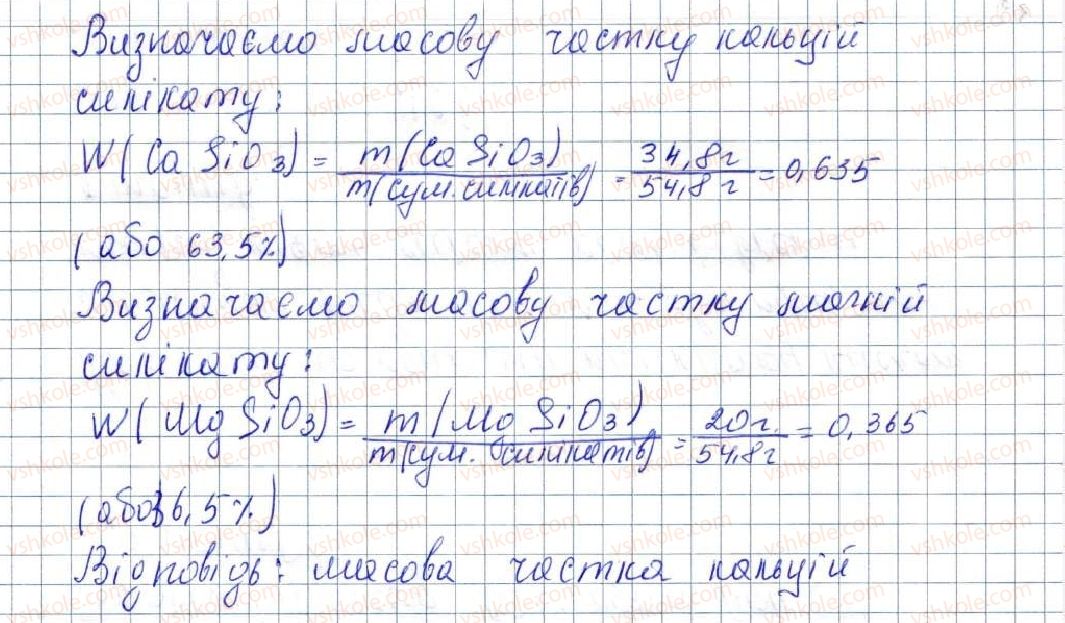 Визначаємо масову частку кальцій
силікату:
W(CaSiO₃) = m(CaSiO₃) / m(сум. силікатів) = 34,8г / 54,8г = 0,635
(або 63,5%)
Визначаємо масову частку магній
силікату:
W(MgSiO₃) = m(MgSiO₃) / m(сум. силікатів) = 20г. / 54,8г = 0,365
(або 36,5%)
Відповідь: масова частка кальцій